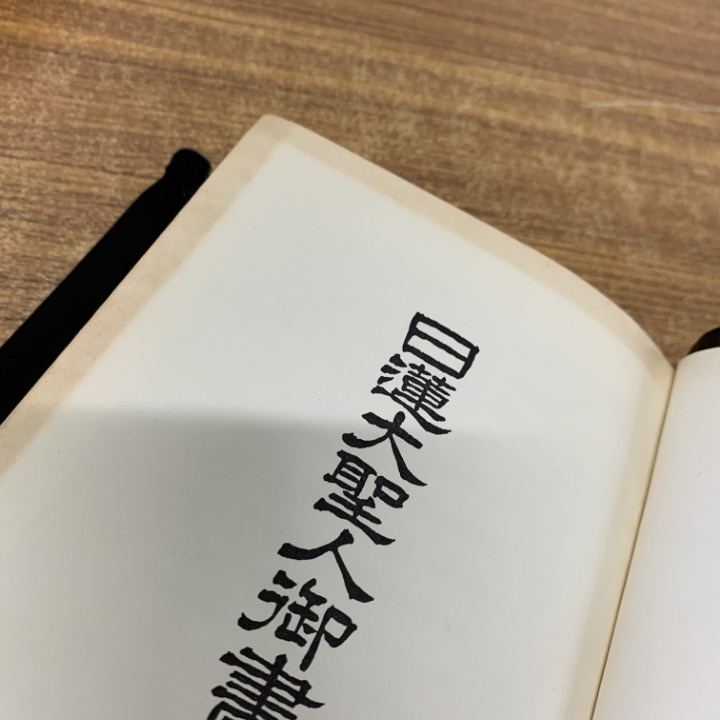 日蓮大聖人御書